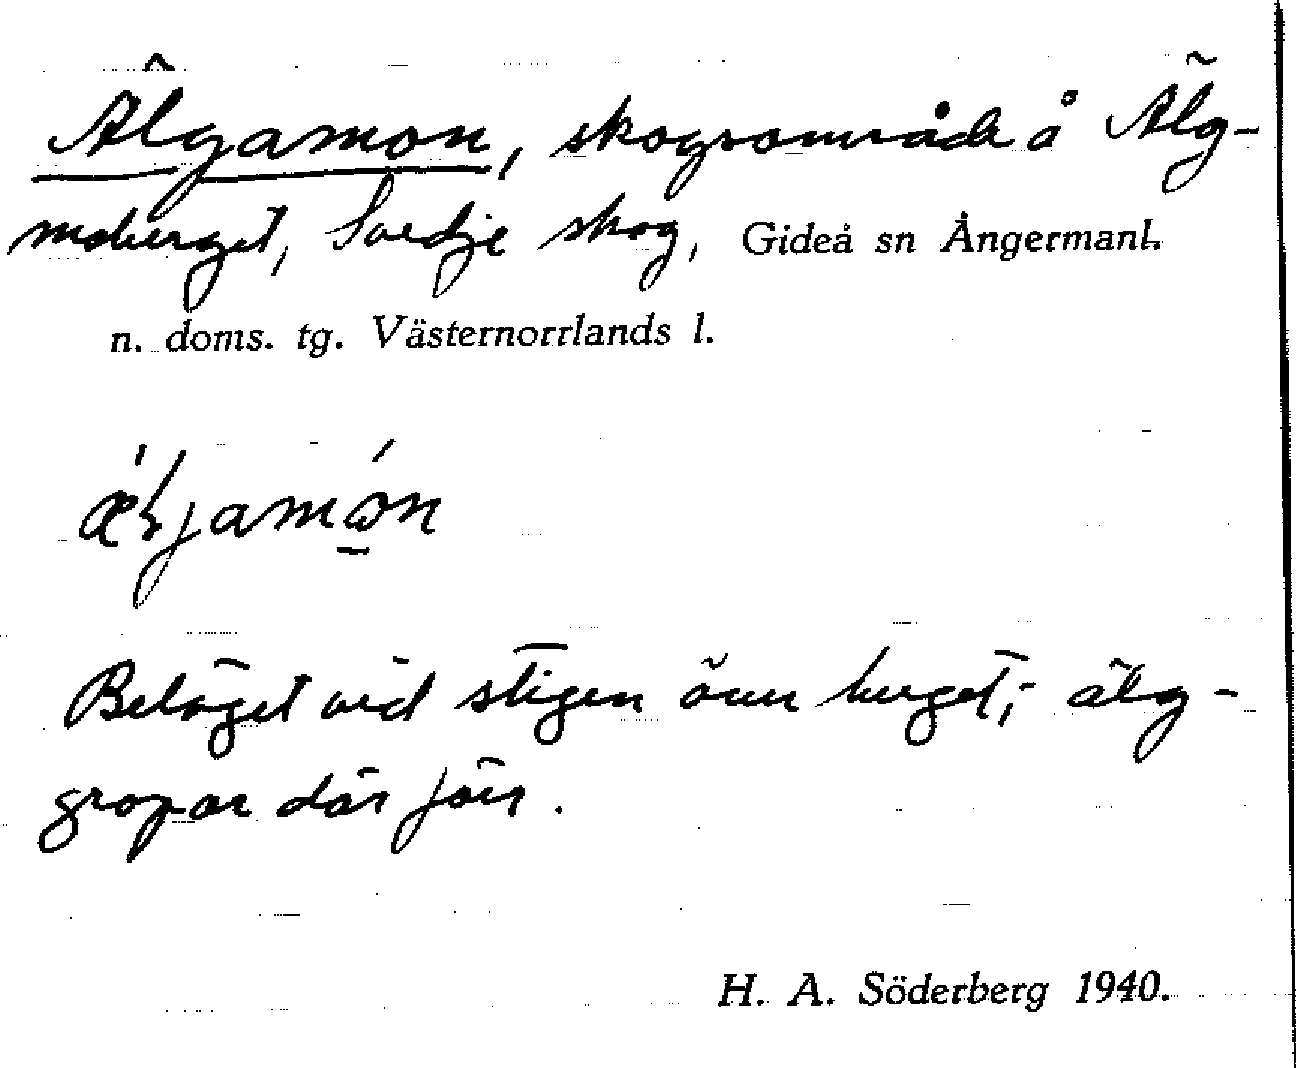 Älgamon, skogsområde å Älg-
moberget, Svedje skog, Gideå sn Ångermanl.
n. doms. tg. Västernorrlands l.
Beläget vid stigen över berget; älg-
gropar där förr.
H. A. Söderberg 1940.